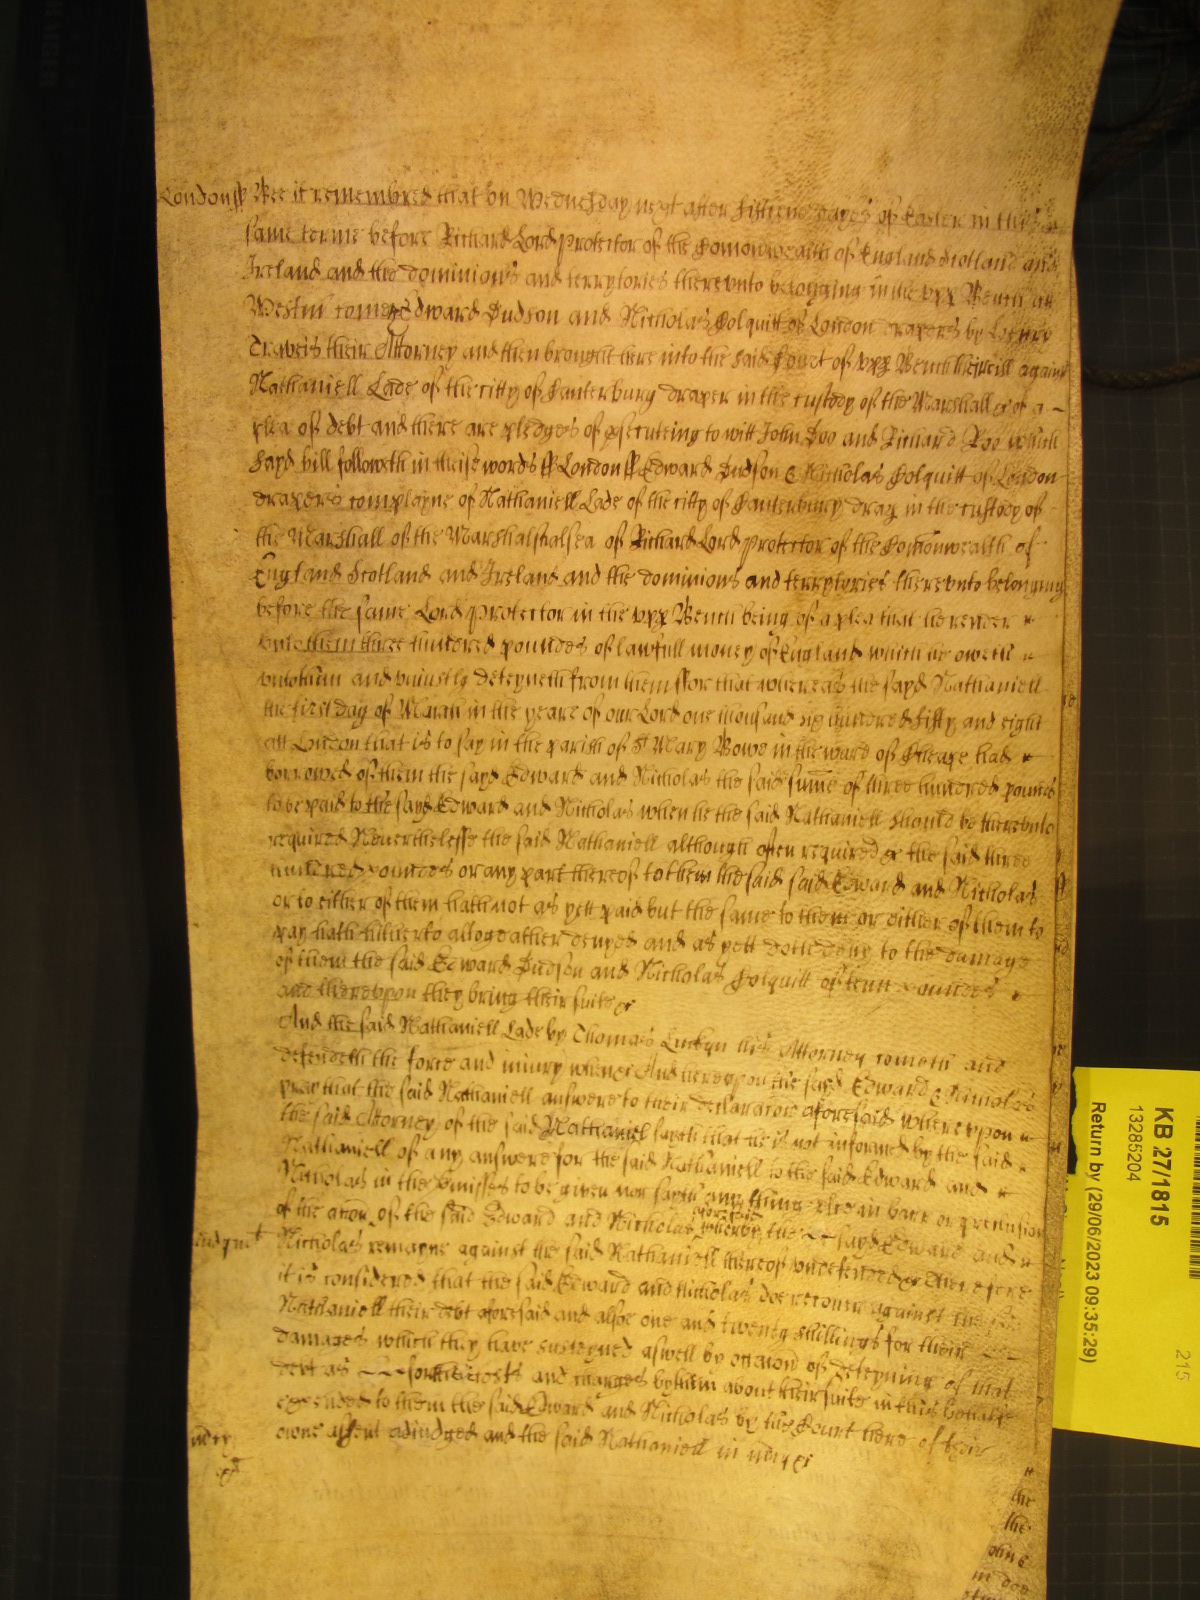 London ss Bee it remembred that on Wednesday next after fifteene dayes of Easter in this
same terme before Richard Lord Protector of the Comonwealth of England Scotland and
Ireland and the dominions and terrytories therevnto belonging in the vpp Bench att
Westm came Edward Dudson and Nicholas Colquitt of London drapers by
Traveis their Attorney and then brought here into the said Court of vpp Bench their bill against
Nathaniell Lade of the citty of Canterbury draper in the custody of the Marshall &c of a
plea of debt and there are pledges of psecuteing to witt John Doo and Richard Roo which
sayd bill followeth in theise words ss London ss Edward Dudson & Nicholas Colquitt of London
drapers complayne of Nathaniell Lade of the citty of Canterbury drap in the custody of
the Marshall of the Marshalshalsea of Richard Lord Protector of the Comonwealth of
England Scotland and Ireland and the dominions and terrytories therevnto belonging
before the same Lord Protector in the vpp Bench being of a plea that he render
vnto them three hundred poundes of lawfull money of England which he oweth
vnto them and vniustly deteyneth from them ffor that whereas the sayd Nathaniell
the first day of March in the yeare of our Lord one thousand six hundred fifty and eight
att London that is to say in the parish of St Mary Bowe in the ward of Cheape had
borrowed of them the sayd Edward and Nicholas the said sume of three hundred pounds
to be paid to the sayd Edward and Nicholas when he the said Nathaniell should be therevnto
required Neverthelesse the said Nathaniell although often required &c the said three
hundred poundes or any part thereof to them the said said Edward and Nicholas
or to either of them hath not as yett paid but the same to them or either of them to
pay hath hitherto altogeather denyed and as yett doth deny to the damage
of them the said Edward Dudson and Nicholas Colquitt of tenn poundes
and therevpon they bring their suite &c
And the said Nathaniell Lade by Thomas Luckyn his Attorney cometh and
defendeth the force and iniury when &c And herevpon the sayd Edward & Nicholas
pray that the said Nathaniell answere to their declaracon aforesaid wherevpon
the said Attorney of the said Nathaniel saith that he is not informed by the said
Nathaniell of any answere for the said Nathaniell to the said Edward and
Nicholas in the pmisses to be given nor sayth any thing else in barr or preclusion
of the accon of the said Edward and Nicholas aforesaid wherby the sayd Edward and
Nicholas remayne against the said Nathaniell thereof vndefended &c Therefore
it is considered that the said Edward and Nicholas doe recover against the said
Nathaniell their debt aforesaid and alsoe one and twenty shillings for their
damages which they have susteyned aswell by occacon of deteyning of that
debt as for their costs and charges by them about their suite in this behalfe
expended to them the said Edward and Nicholas by the Court here of their
owne assent adiudged and the said Nathaniell in mercy &c
KB 27/1815
13285204
Return by (29/06/2023 09:35:29)
215